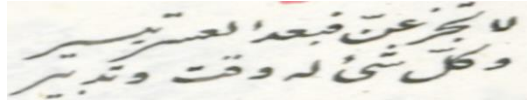 لا تجزعنّ فبعد العسر تيسير
وكلّ شئ له وقت وتدبير